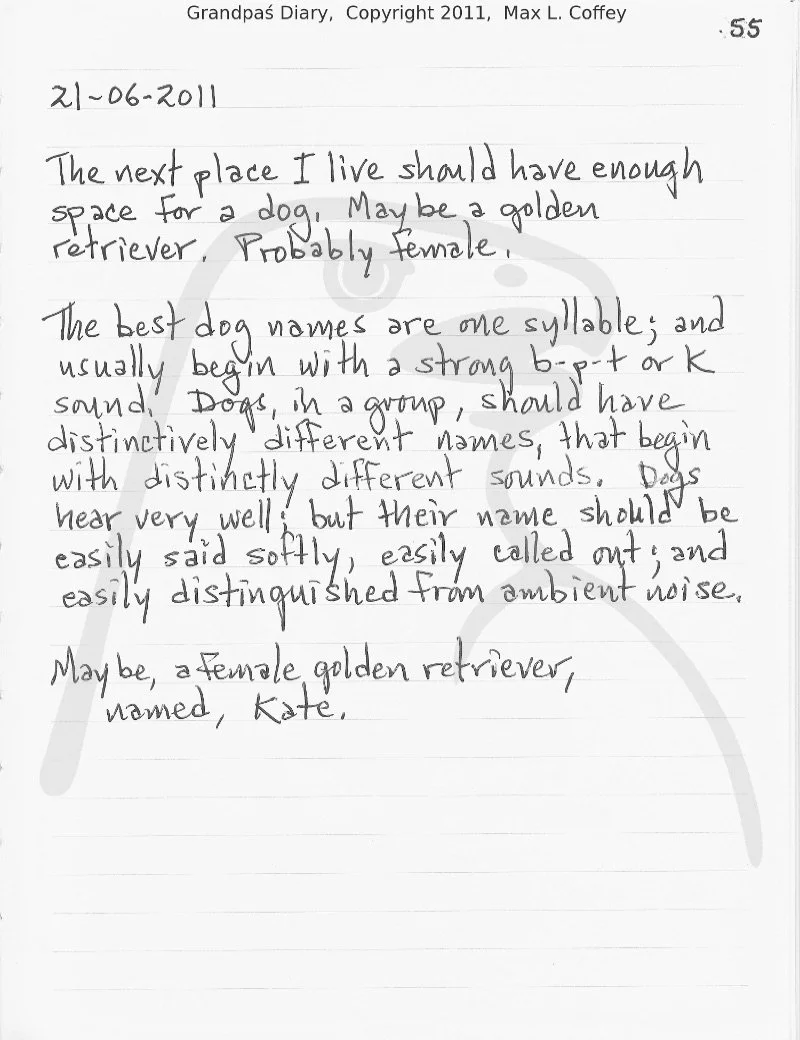 Grandpaś Diary, Copyright 2011, Max L. Coffey
55
21-06-2011
The next place I live should have enough
space for a dog. Maybe a golden
retriever. Probably female.
The best dog names are one syllable; and
usually begin with a strong b-p-t or K
sound. Dogs, in a group, should have
distinctively different names, that begin
with distinctly different sounds. Dogs
hear very well; but their name should be
easily said softly, easily called out; and
easily distinguished from ambient noise.
Maybe, a female golden retriever,
named, Kate.